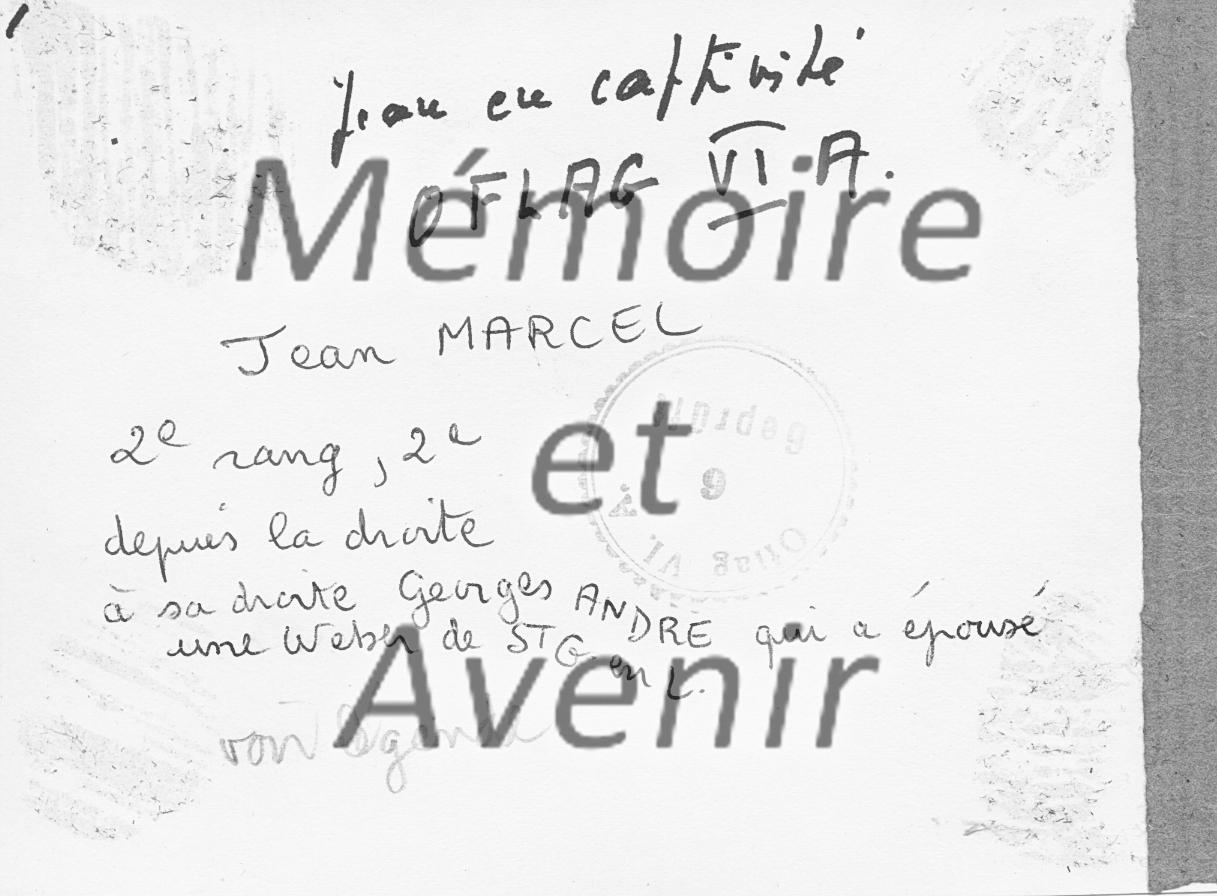 Jean en captivité
OFLAG VI A.
Mémoire
Jean MARCEL
et
Geprüft
9
Oflag VI A
2e rang, 2e
depuis la droite
à sa droite Georges ANDRÉ qui a épousé
une Weber de ST G en L.
Avenir
voir légende